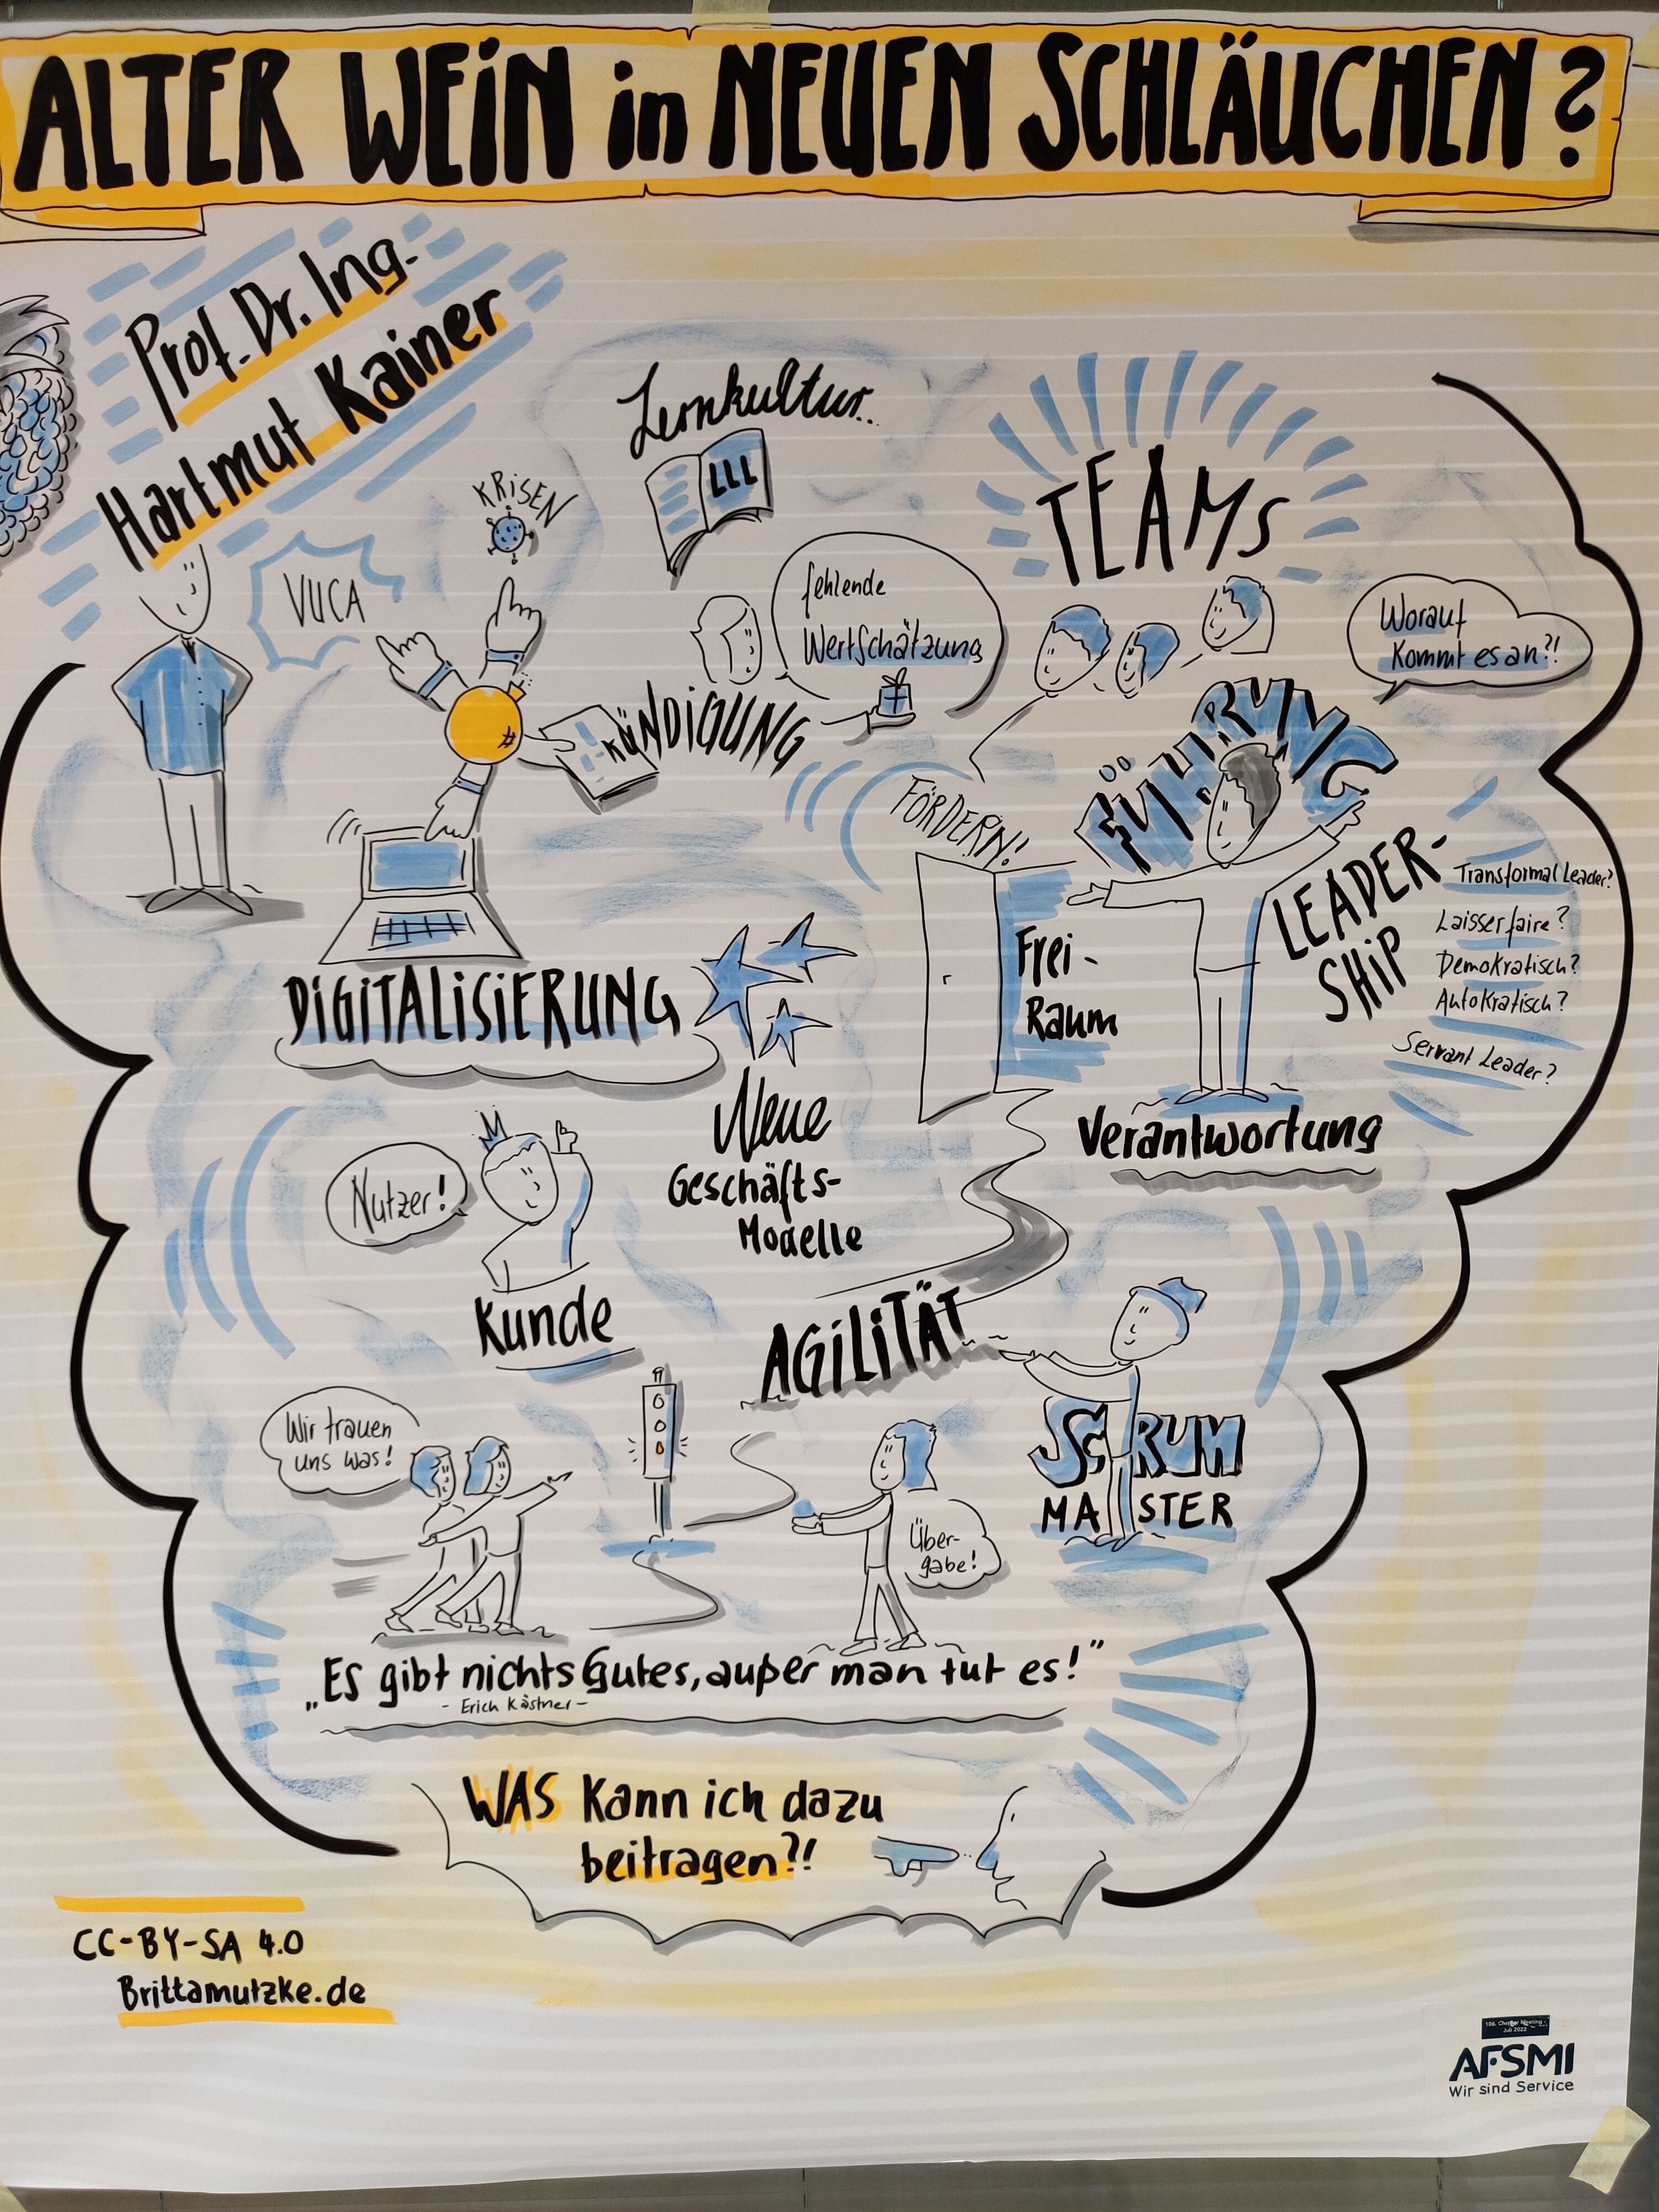 ALTER WEIN in NEUEN SCHLÄUCHEN?
Prof. Dr. Ing.
Hartmut Kainer
Lernkultur..
LLL
KRISEN
VUCA
TEAMS
fehlende
Wertschätzung
Worauf
Kommt es an?!
KÜNDIGUNG
FÖRDERN!
FÜHRUNG
LEADER-
SHIP
Transformal Leader?
Laisser faire?
Demokratisch?
Autokratisch?
Servant Leader?
Frei-
Raum
DIGITALISIERUNG
Neue
Geschäfts-
Modelle
Verantwortung
Nutzer!
Kunde
AGILITÄT
SCRUM
MASTER
Wir trauen
uns was!
Über-
gabe!
„Es gibt nichts Gutes, außer man tut es!"
- Erich Kästner -
WAS Kann ich dazu
beitragen?!
CC-BY-SA 4.0
Brittamutzke.de
106. Chapter Meeting -
Juli 2022
AFSMI
Wir sind Service